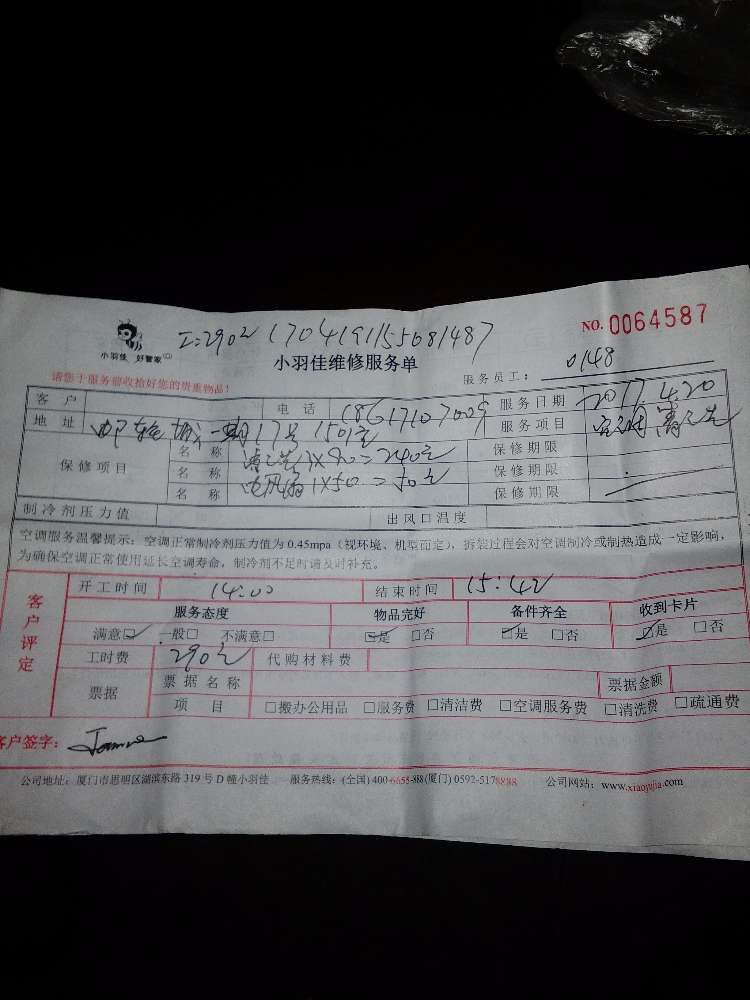 小羽佳 好管家
I:2902 1704191155681487
NO. 0064587
小羽佳维修服务单
请您于服务前收拾好您的贵重物品!
服务员工: 0148
客 户 电 话 服务日期 2017.4.20
地 址 一期17号1501室 服务项目 空调清洗
保修项目 名 称 保修期限
名 称 电风扇1X50=50元 保修期限
名 称 保修期限
制冷剂压力值 出风口温度
空调服务温馨提示:空调正常制冷剂压力值为 0.45mpa(视环境、机型而定),拆装过程会对空调制冷或制热造成一定影响,
为确保空调正常使用延长空调寿命,制冷剂不足时请及时补充。
客户评定
开工时间 14:00 结束时间 15:42
服务态度 物品完好 备件齐全 收到卡片
满意☑ 一般□ 不满意□ ☑是 □否 ☑是 □否 ☑是 □否
工时费 290元 代购材料费
票据 票据名称 票据金额
项 目 □搬办公用品 □服务费 □清洁费 □空调服务费 □清洗费 □疏通费
客户签字:
公司地址:厦门市思明区湖滨东路 319 号 D 幢小羽佳 服务热线:(全国) 400-6655-888 (厦门) 0592-5178888 公司网站:www.xiaoyujia.com